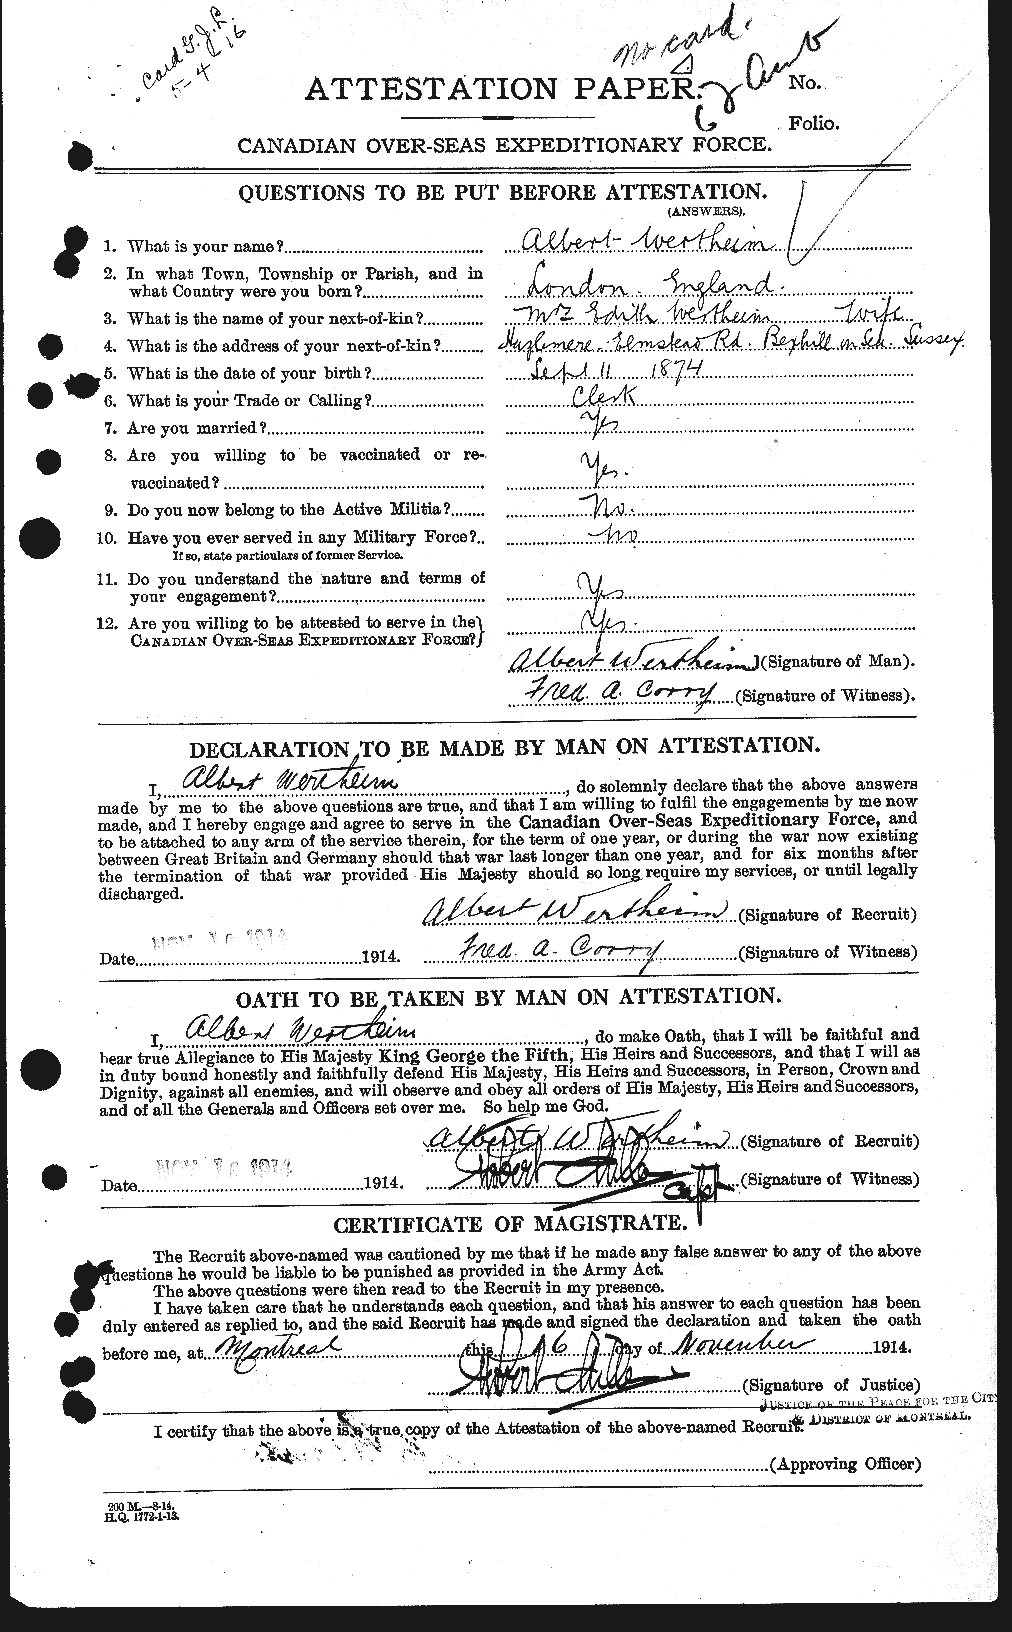 Card G.J.L.
5-4-16
No card.
Amb
6
ATTESTATION PAPER.
No.
Folio.
CANADIAN OVER-SEAS EXPEDITIONARY FORCE.
QUESTIONS TO BE PUT BEFORE ATTESTATION.
(ANSWERS).
1. What is your name? Albert Wertheim
2. In what Town, Township or Parish, and in
what Country were you born? London. England.
3. What is the name of your next-of-kin? Mrs Edith Wertheim Wife
4. What is the address of your next-of-kin? Hazlemere. Elmstead Rd. Bexhill on Sea. Sussex.
5. What is the date of your birth? Sept 11 1874
6. What is your Trade or Calling? Clerk
7. Are you married? Yes
8. Are you willing to be vaccinated or re-
vaccinated? Yes.
9. Do you now belong to the Active Militia? No.
10. Have you ever served in any Military Force? No
If so, state particulars of former Service.
11. Do you understand the nature and terms of
your engagement? Yes
12. Are you willing to be attested to serve in the
CANADIAN OVER-SEAS EXPEDITIONARY FORCE? Yes.
Albert Wertheim (Signature of Man).
Fred. A. Corry (Signature of Witness).
DECLARATION TO BE MADE BY MAN ON ATTESTATION.
I, Albert Wertheim, do solemnly declare that the above answers
made by me to the above questions are true, and that I am willing to fulfil the engagements by me now
made, and I hereby engage and agree to serve in the Canadian Over-Seas Expeditionary Force, and
to be attached to any arm of the service therein, for the term of one year, or during the war now existing
between Great Britain and Germany should that war last longer than one year, and for six months after
the termination of that war provided His Majesty should so long require my services, or until legally
discharged.
Albert Wertheim (Signature of Recruit)
NOV 16 1914
Date 1914. Fred. A. Corry (Signature of Witness)
OATH TO BE TAKEN BY MAN ON ATTESTATION.
I, Albert Wertheim, do make Oath, that I will be faithful and
bear true Allegiance to His Majesty King George the Fifth, His Heirs and Successors, and that I will as
in duty bound honestly and faithfully defend His Majesty, His Heirs and Successors, in Person, Crown and
Dignity, against all enemies, and will observe and obey all orders of His Majesty, His Heirs and Successors,
and of all the Generals and Officers set over me. So help me God.
Albert Wertheim (Signature of Recruit)
NOV 16 1914
Date 1914. Capt (Signature of Witness)
CERTIFICATE OF MAGISTRATE.
The Recruit above-named was cautioned by me that if he made any false answer to any of the above
questions he would be liable to be punished as provided in the Army Act.
The above questions were then read to the Recruit in my presence.
I have taken care that he understands each question, and that his answer to each question has been
duly entered as replied to, and the said Recruit has made and signed the declaration and taken the oath
before me, at Montreal this 16 day of November 1914.
(Signature of Justice)
JUSTICE OF THE PEACE FOR THE CITY
& DISTRICT OF MONTREAL.
I certify that the above is a true copy of the Attestation of the above-named Recruit.
(Approving Officer)
200 M.—8-14.
H.Q. 1772-1-13.